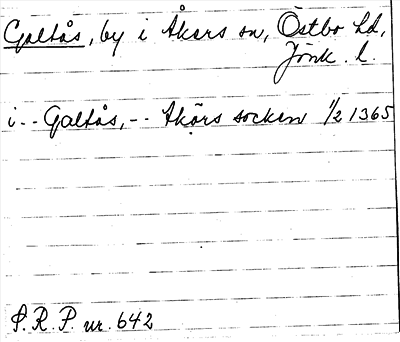 Galtås, by i Åkers sn, Östbo hd,
Jönk. l.
i -- Galtås, -- Akørs socken 1/2 1365
S.R.P. nr. 642